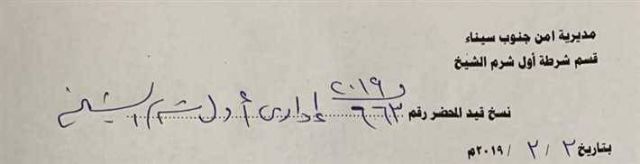 مديرية امن جنوب سيناء
قسم شرطة أول شرم الشيخ
نسخ قيد المحضر رقم ٦٦٣ / ٢٠١٩ إدارى أول شرم الشيخ
بتاريخ ٢ / ٢ / ٢٠١٩م